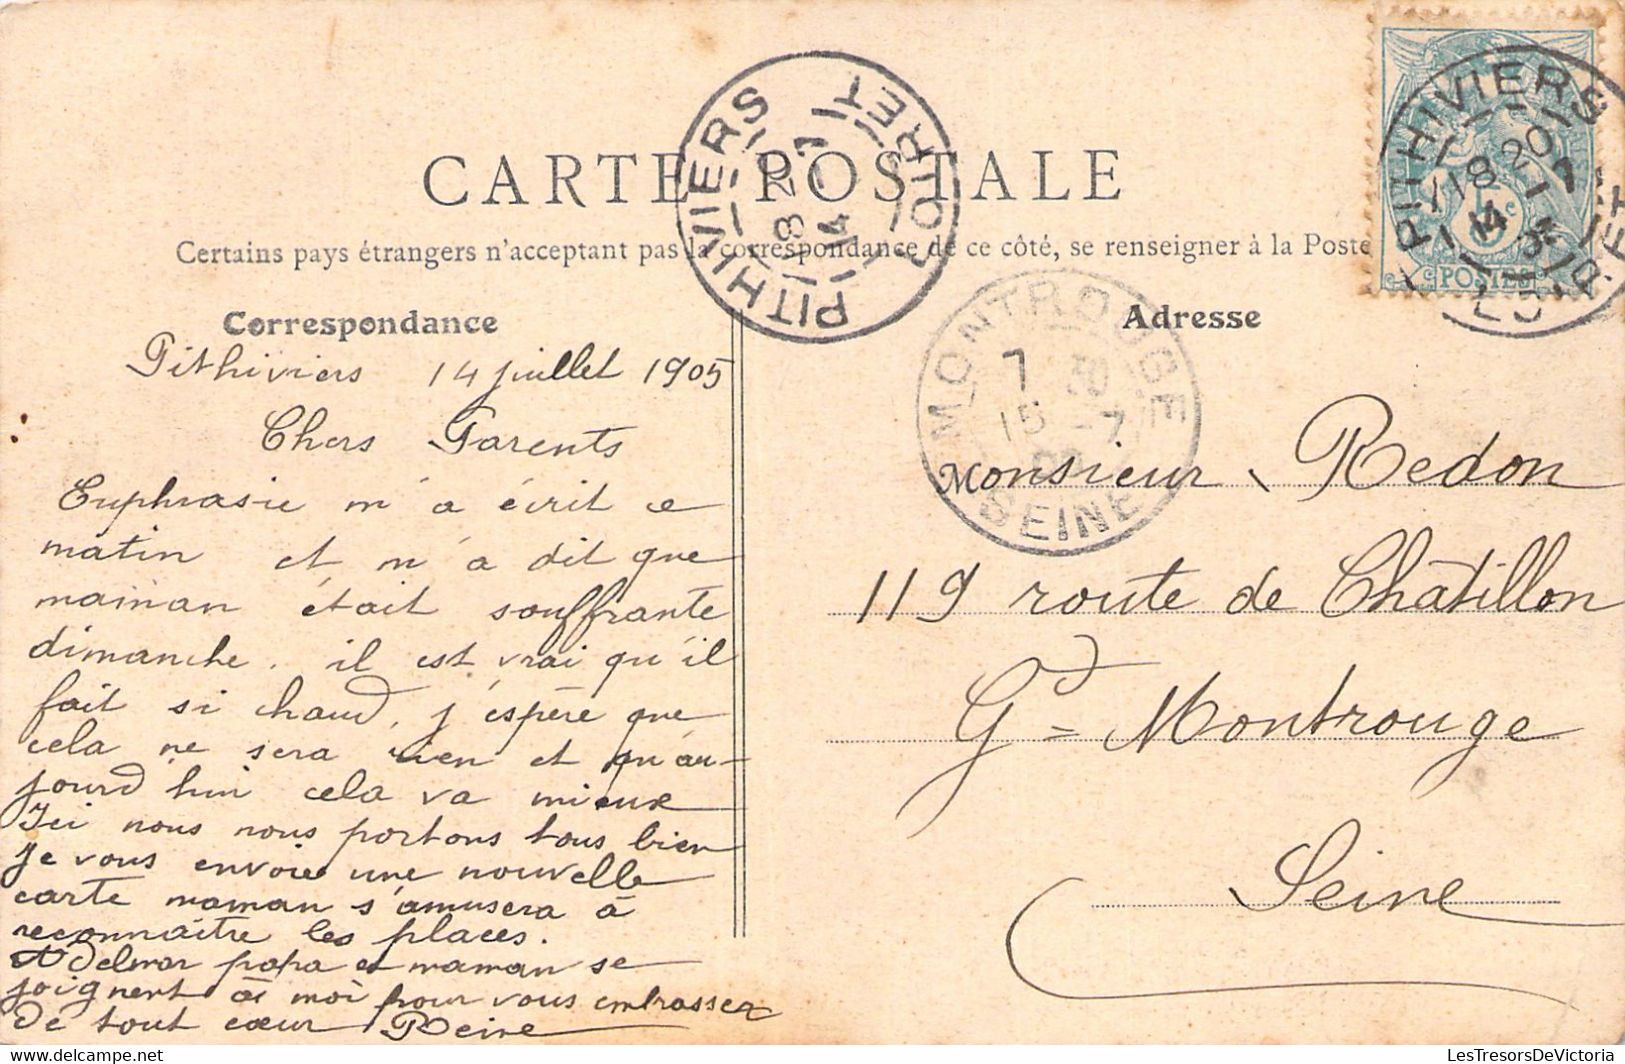 CARTE POSTALE
Certains pays étrangers n'acceptant pas la correspondance de ce côté, se renseigner à la Poste
PITHIVIERS LOIRET
18 20
14 7
PITHIVIERS LOIRET
18 20
14 7
5c
POSTES
MONTROUGE SEINE
7 30
15 - 7
05
Correspondance
Pithiviers 14 juillet 1905
Chers Parents
Euphrasie m'a écrit ce
matin et m'a dit que
maman était souffrante
dimanche. il est vrai qu'il
fait si chaud, j'espère que
cela ne sera rien et qu'au-
jourd'hui cela va mieux
Ici nous nous portons tous bien
Je vous envoie une nouvelle
carte maman s'amusera à
reconnaître les places.
Adelmar papa et maman se
joignent à moi pour vous embrasser
de tout cœur Reine
Adresse
Monsieur Redon
119 route de Châtillon
Gd Montrouge
Seine
LesTresorsDeVictoria